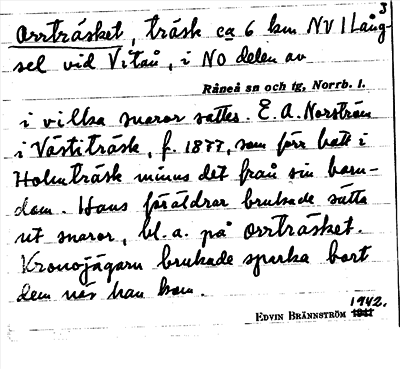 3
Orrträsket, träsk ca 6 km NV I Lång-
sel vid Vitån, i NO delen av
Råneå sn och tg, Norrb. l.
i vilka snaror sattes. E. A. Norström
i Västiträsk, f. 1877, som förr bott i
Holmträsk minns det från sin barn-
dom. Hans föräldrar brukade sätta
ut snaror, bl. a. på Orrträsket.
Kronojägarn brukade sparka bort
dem när han kom.
1942.
EDVIN BRÄNNSTRÖM 1941